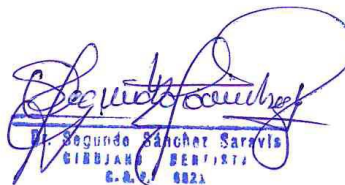 Segundo Sánchez
Dr. Segundo Sánchez Saravia
CIRUJANO DENTISTA